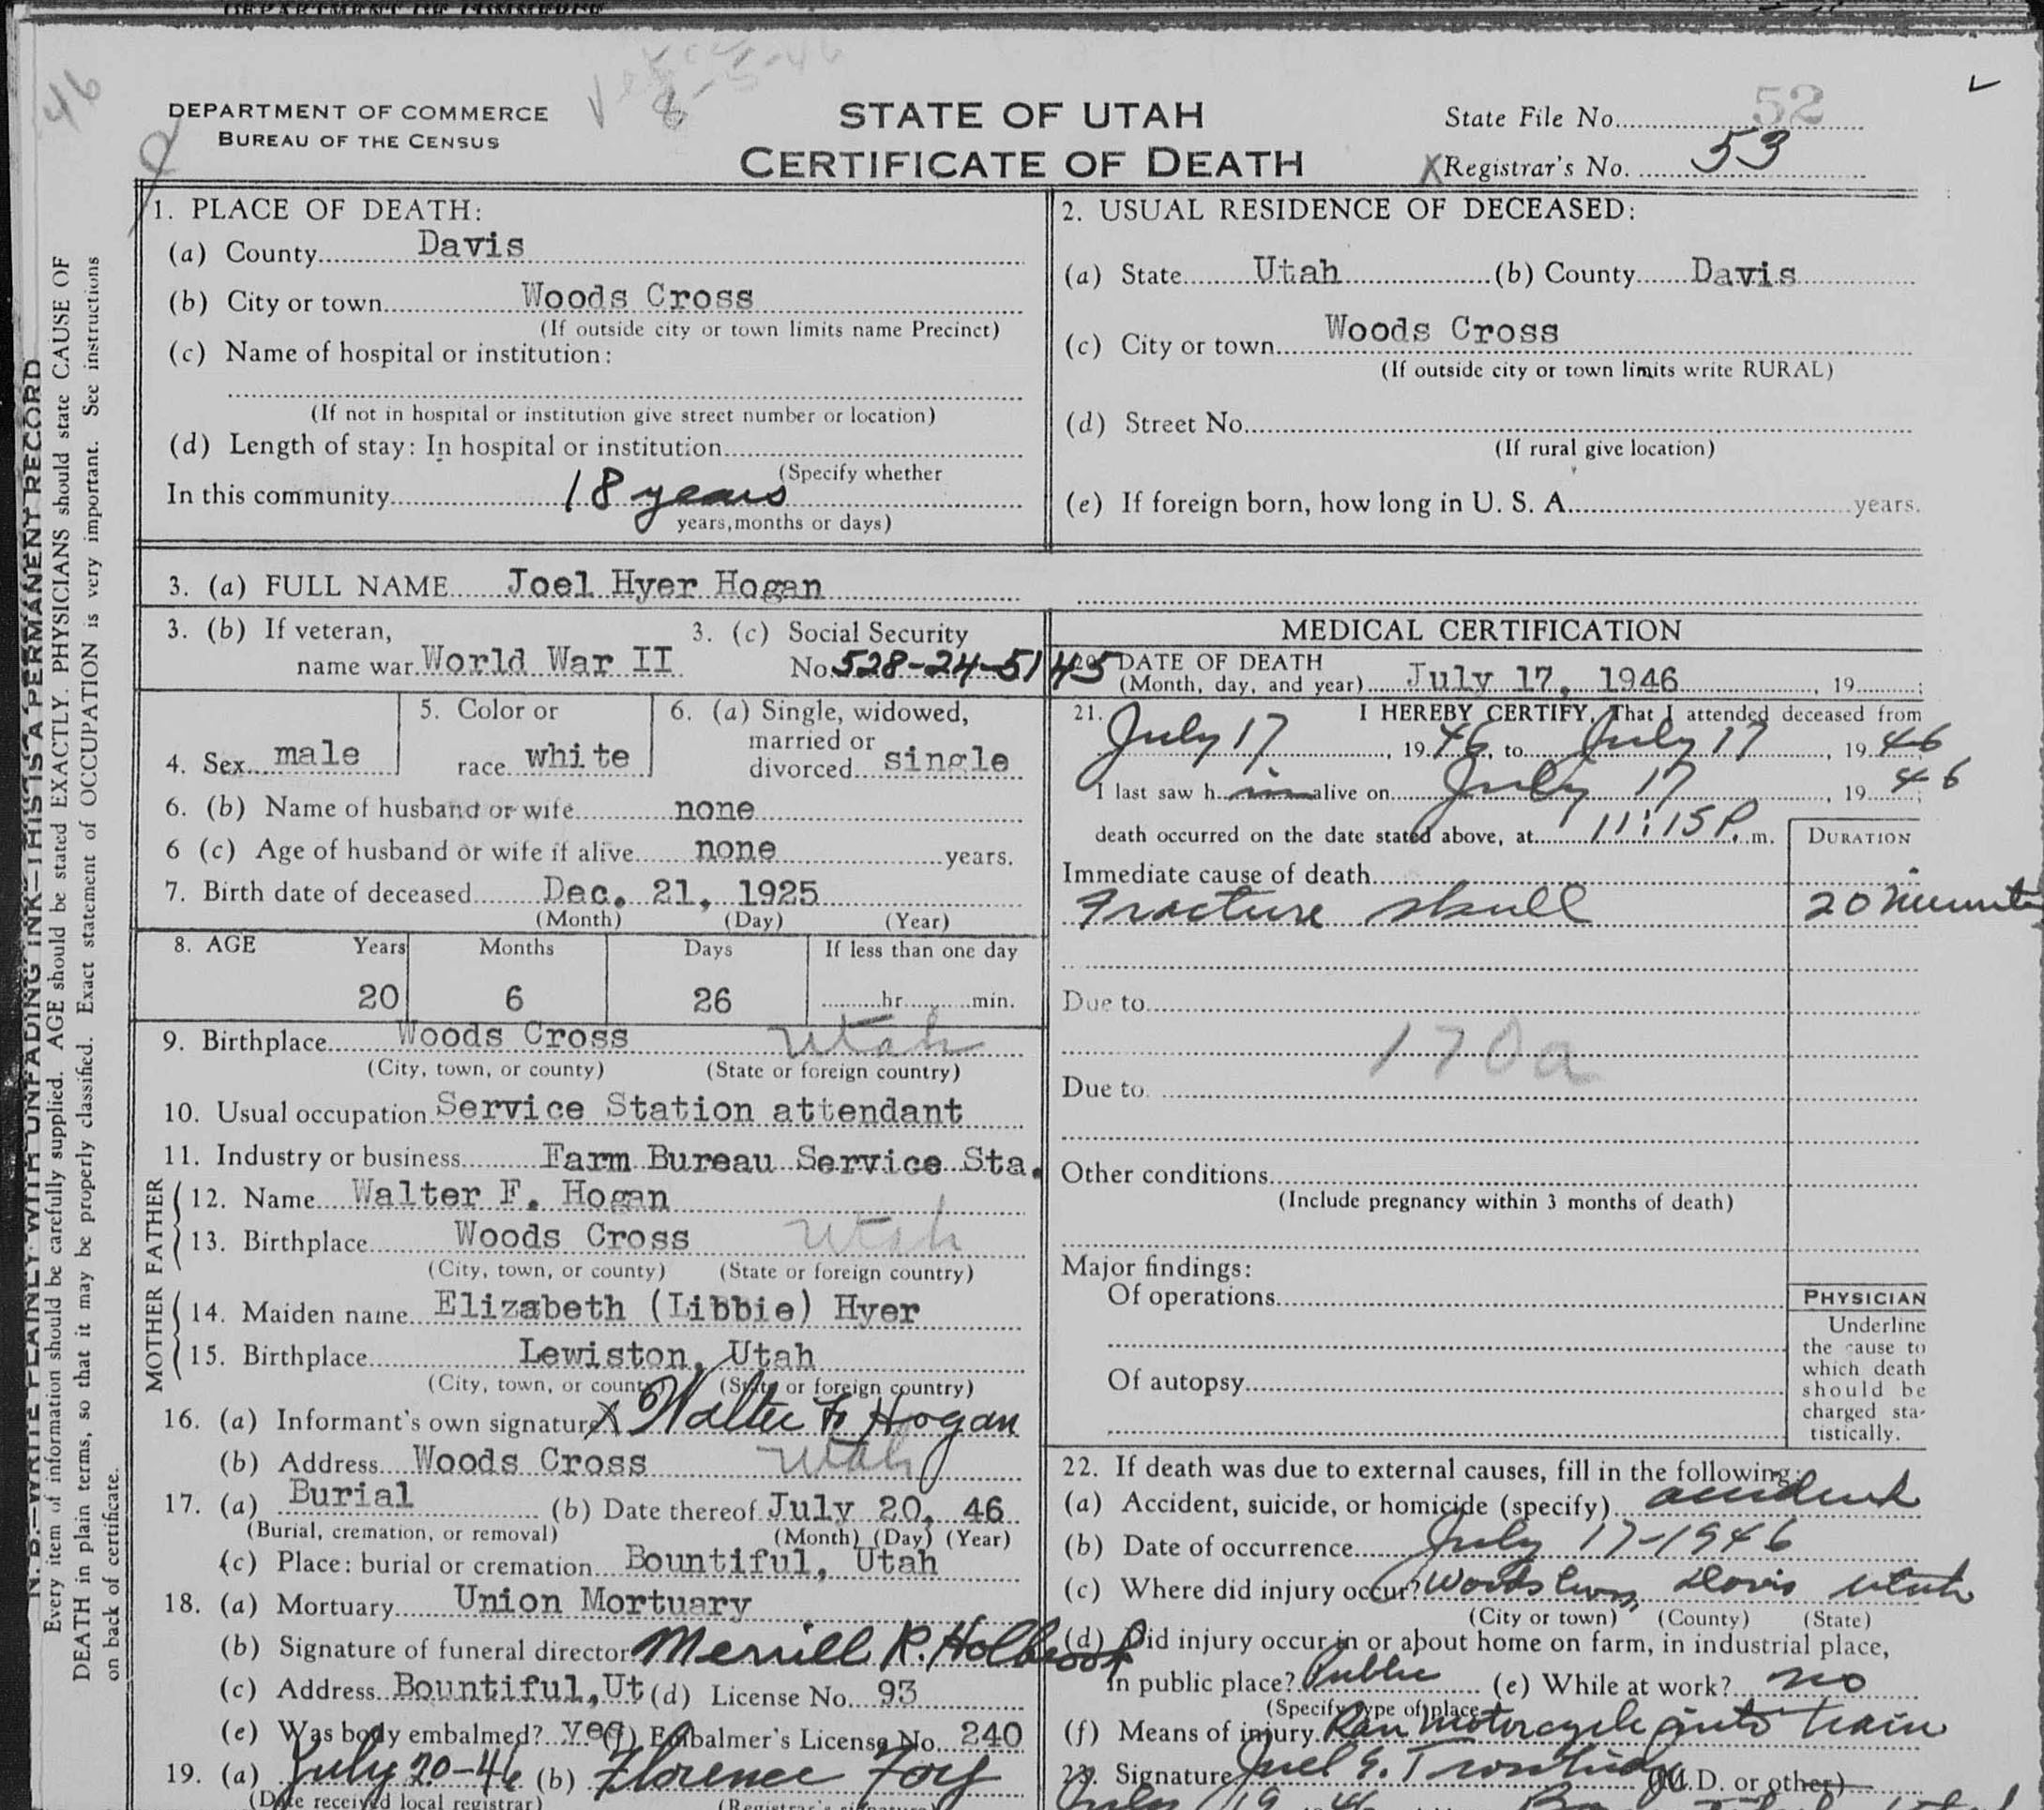 DEPARTMENT OF COMMERCE
46
DEPARTMENT OF COMMERCE
BUREAU OF THE CENSUS
8-5-46
STATE OF UTAH
CERTIFICATE OF DEATH
State File No. 52
X Registrar's No. 53
N. B.—WRITE PLAINLY WITH UNFADING INK—THIS IS A PERMANENT RECORD
Every item of information should be carefully supplied. AGE should be stated EXACTLY. PHYSICIANS should state CAUSE OF
DEATH in plain terms, so that it may be properly classified. Exact statement of OCCUPATION is very important. See instructions
on back of certificate.
1. PLACE OF DEATH:
(a) County Davis
(b) City or town Woods Cross
(If outside city or town limits name Precinct)
(c) Name of hospital or institution:
(If not in hospital or institution give street number or location)
(d) Length of stay: In hospital or institution
(Specify whether
In this community 18 years
years, months or days)
2. USUAL RESIDENCE OF DECEASED:
(a) State Utah (b) County Davis
(c) City or town Woods Cross
(If outside city or town limits write RURAL)
(d) Street No.
(If rural give location)
(e) If foreign born, how long in U. S. A. years.
3. (a) FULL NAME Joel Hyer Hogan
3. (b) If veteran, 3. (c) Social Security
name war World War II No. 528-24-5145
4. Sex male
5. Color or
race white
6. (a) Single, widowed,
married or
divorced single
6. (b) Name of husband or wife none
6 (c) Age of husband or wife if alive none years.
7. Birth date of deceased Dec. 21, 1925
(Month) (Day) (Year)
8. AGE Years Months Days If less than one day
20 6 26 hr. min.
9. Birthplace Woods Cross Utah
(City, town, or county) (State or foreign country)
10. Usual occupation Service Station attendant
11. Industry or business Farm Bureau Service Sta.
FATHER
12. Name Walter F. Hogan
13. Birthplace Woods Cross Utah
(City, town, or county) (State or foreign country)
MOTHER
14. Maiden name Elizabeth (Libbie) Hyer
15. Birthplace Lewiston, Utah
(City, town, or county) (State or foreign country)
16. (a) Informant's own signature X Walter F Hogan
(b) Address Woods Cross Utah
17. (a) Burial (b) Date thereof July 20, 46
(Burial, cremation, or removal) (Month) (Day) (Year)
(c) Place: burial or cremation Bountiful, Utah
18. (a) Mortuary Union Mortuary
(b) Signature of funeral director Merrill R. Holbrook
(c) Address Bountiful, Ut (d) License No. 93
(e) Was body embalmed? yes (f) Embalmer's License No. 240
19. (a) July 20-46 (b) Florence Foy
(Date received local registrar) (Registrar's signature)
MEDICAL CERTIFICATION
20. DATE OF DEATH
(Month, day, and year) July 17, 1946, 19 ;
21. I HEREBY CERTIFY, That I attended deceased from
July 17, 1946, to July 17, 1946
I last saw h im alive on July 17, 1946;
death occurred on the date stated above, at 11:15 P. m.
DURATION
Immediate cause of death
Fracture skull 20 minutes
Due to
170a
Due to
Other conditions
(Include pregnancy within 3 months of death)
Major findings:
Of operations
Of autopsy
PHYSICIAN
Underline
the cause to
which death
should be
charged sta-
tistically.
22. If death was due to external causes, fill in the following:
(a) Accident, suicide, or homicide (specify) accident
(b) Date of occurrence July 17-1946
(c) Where did injury occur? Woods Cross, Davis Utah
(City or town) (County) (State)
(d) Did injury occur in or about home on farm, in industrial place,
in public place? Public (e) While at work? no
(Specify type of place)
(f) Means of injury Ran motorcycle into train
23. Signature (M.D. or other)
July 19